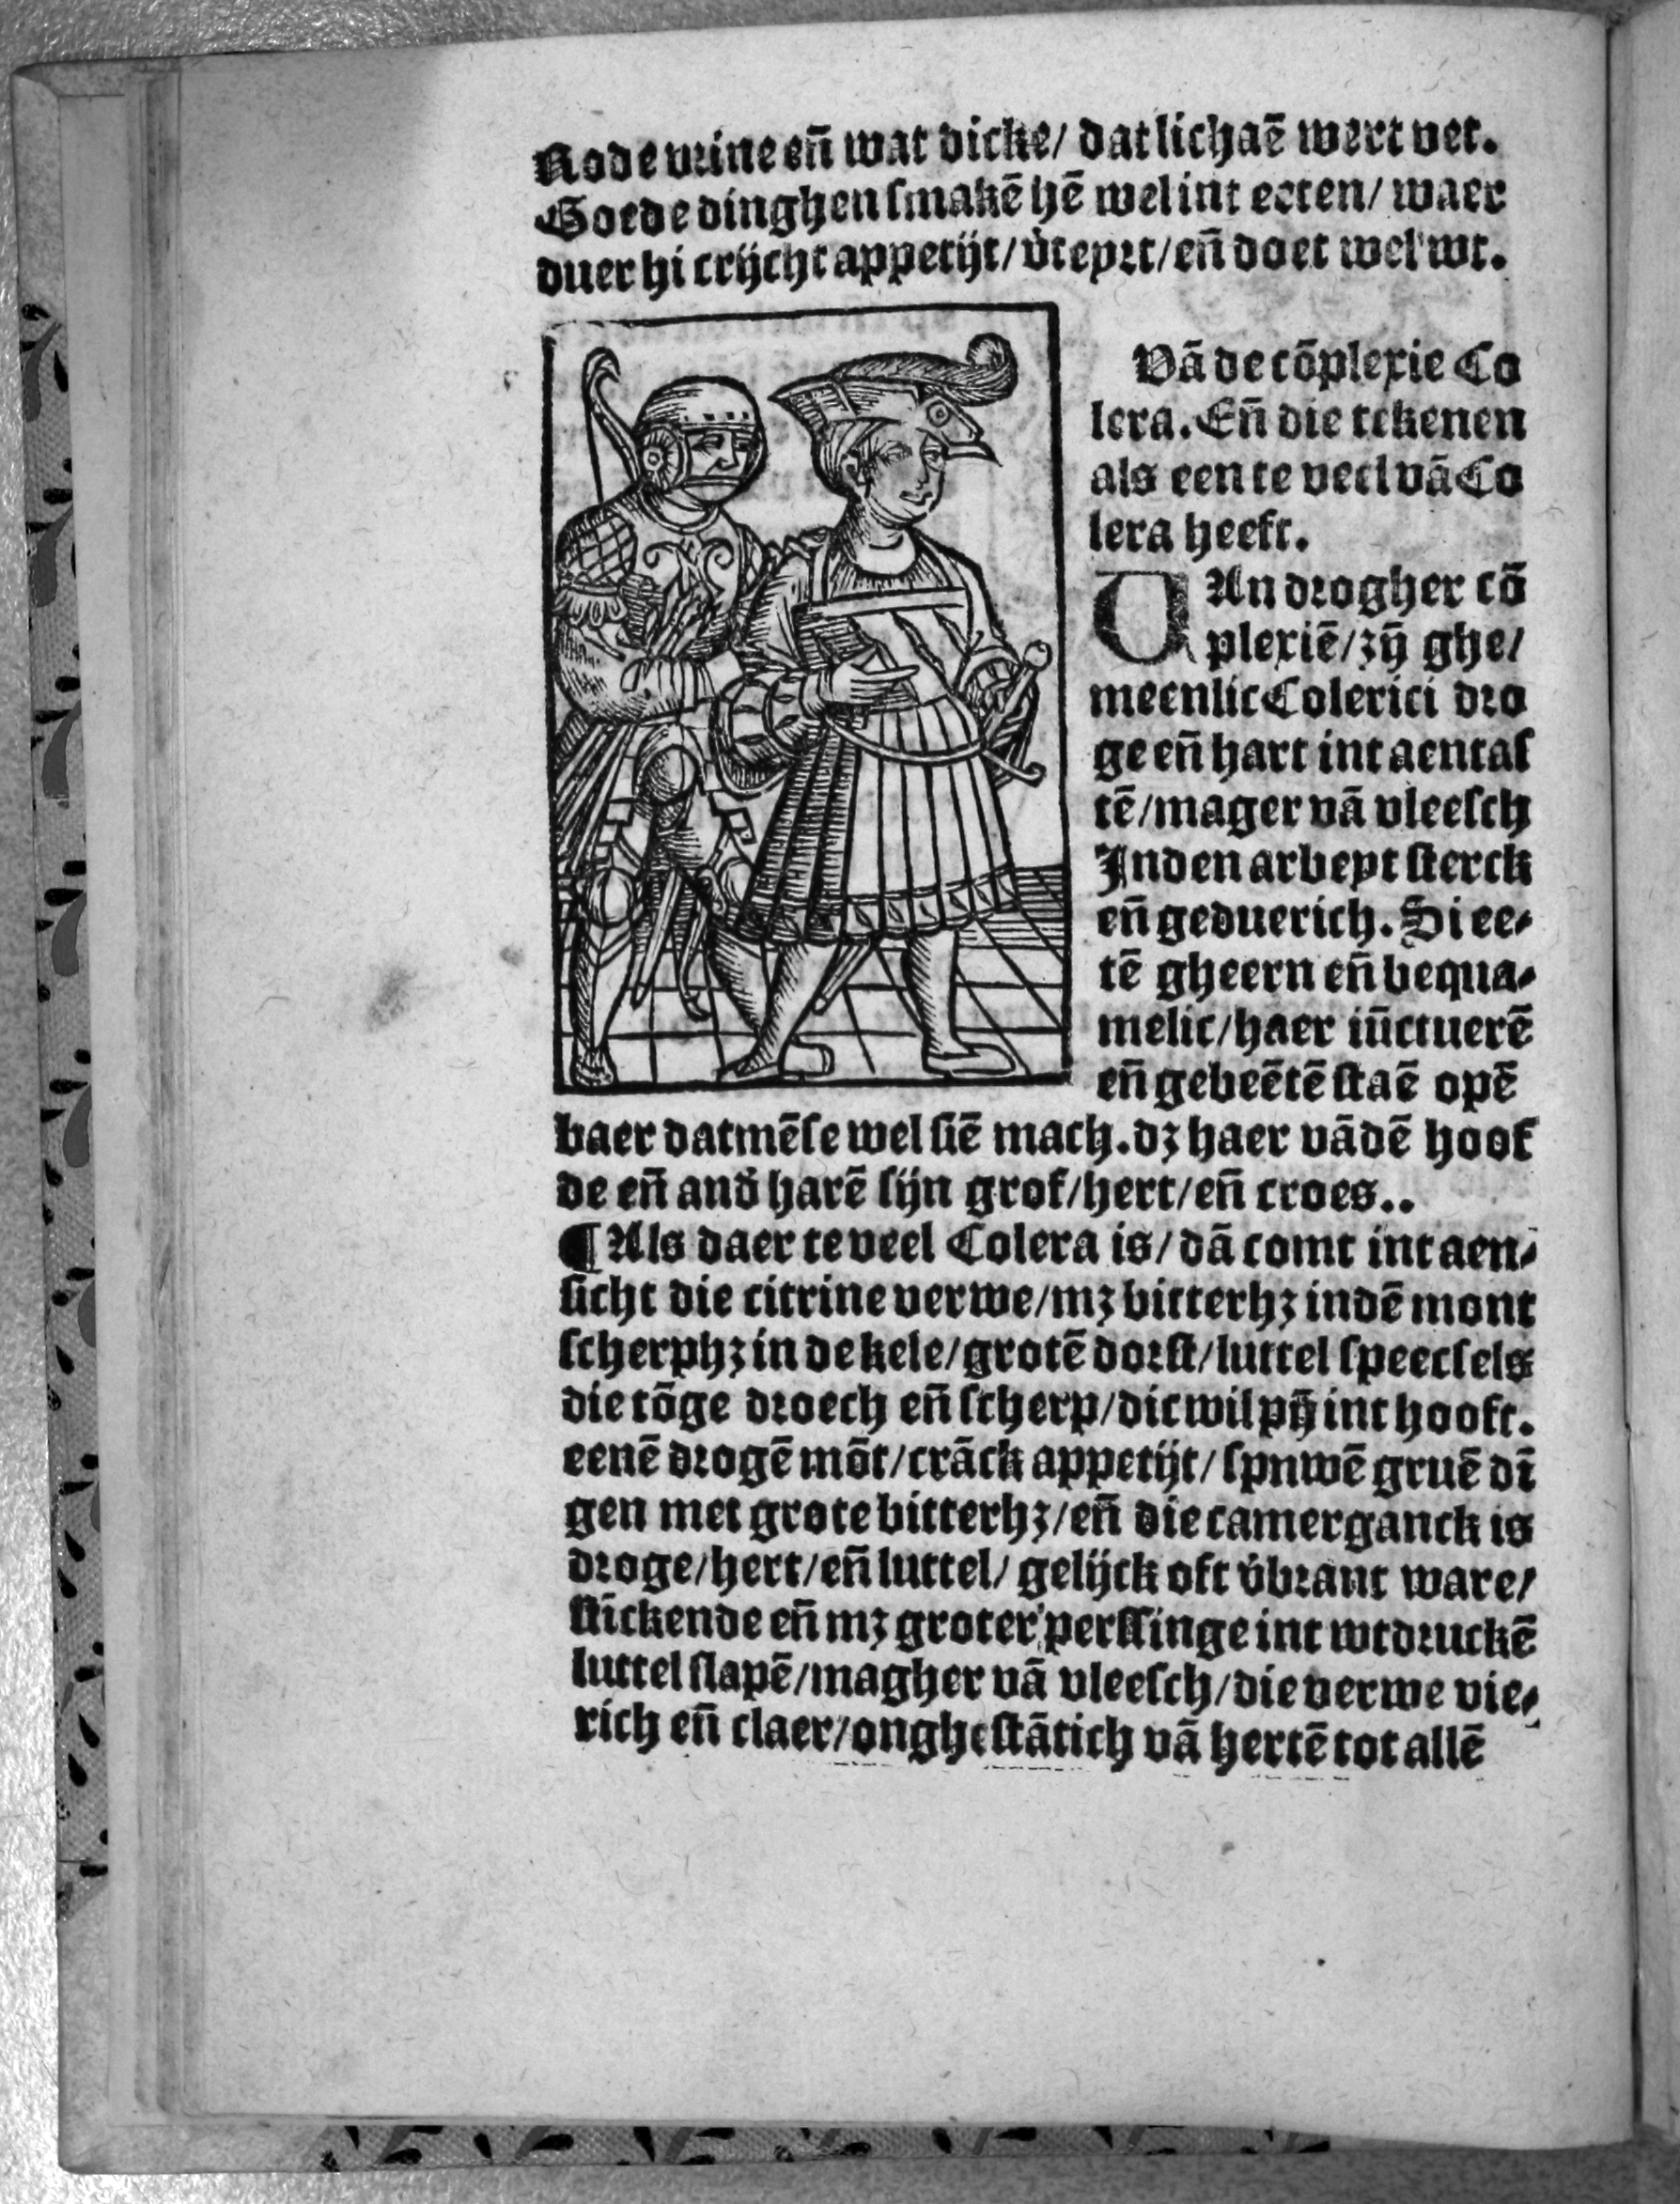 Rode vrine en̄ wat dicke/ dat lichaē wert vet.
Goede dinghen smakē hē wel int ecten/ waer
duer hi crijcht appetijt/ v̇teyrt/ en̄ doet wel wt.
Vā de cōplexie Co
lera. En̄ die tekenen
als een te veel vā Co
lera heeft.
VAn drogher cō
plexiē/ zȳ ghe/
meenlic Colerici dro
ge en̄ hart int aentas
tē/ mager vā vleesch
Inden arbeyt sterck
en̄ geduerich. Si ee-
tē gheern en̄ bequa-
melic/ haer iūctuerē
en̄ gebeētē staē opē
baer datmēse wel siē mach. dz haer vādē hoof
de en̄ and̓ harē sijn grof/ hert/ en̄ croes..
¶ Als daer te veel Colera is/ dā comt int aen-
sicht die citrine verwe/ mz bitterhz indē mont
scherphz in de kele/ grotē dorst/ luttel speecsels
die tōge droech en̄ scherp/ dicwil pȳ int hooft.
eenē drogē mōt/ crāck appetijt/ spnwē gruē dī
gen met grote bitterhz/ en̄ die camerganck is
droge/ hert/ en̄ luttel/ gelijck oft v̇brant ware/
stickende en̄ mz groter perssinge int wtdruckē
luttel slapē/ magher vā vleesch/ die verwe vie-
rich en̄ claer/ onghestātich vā hertē tot allē